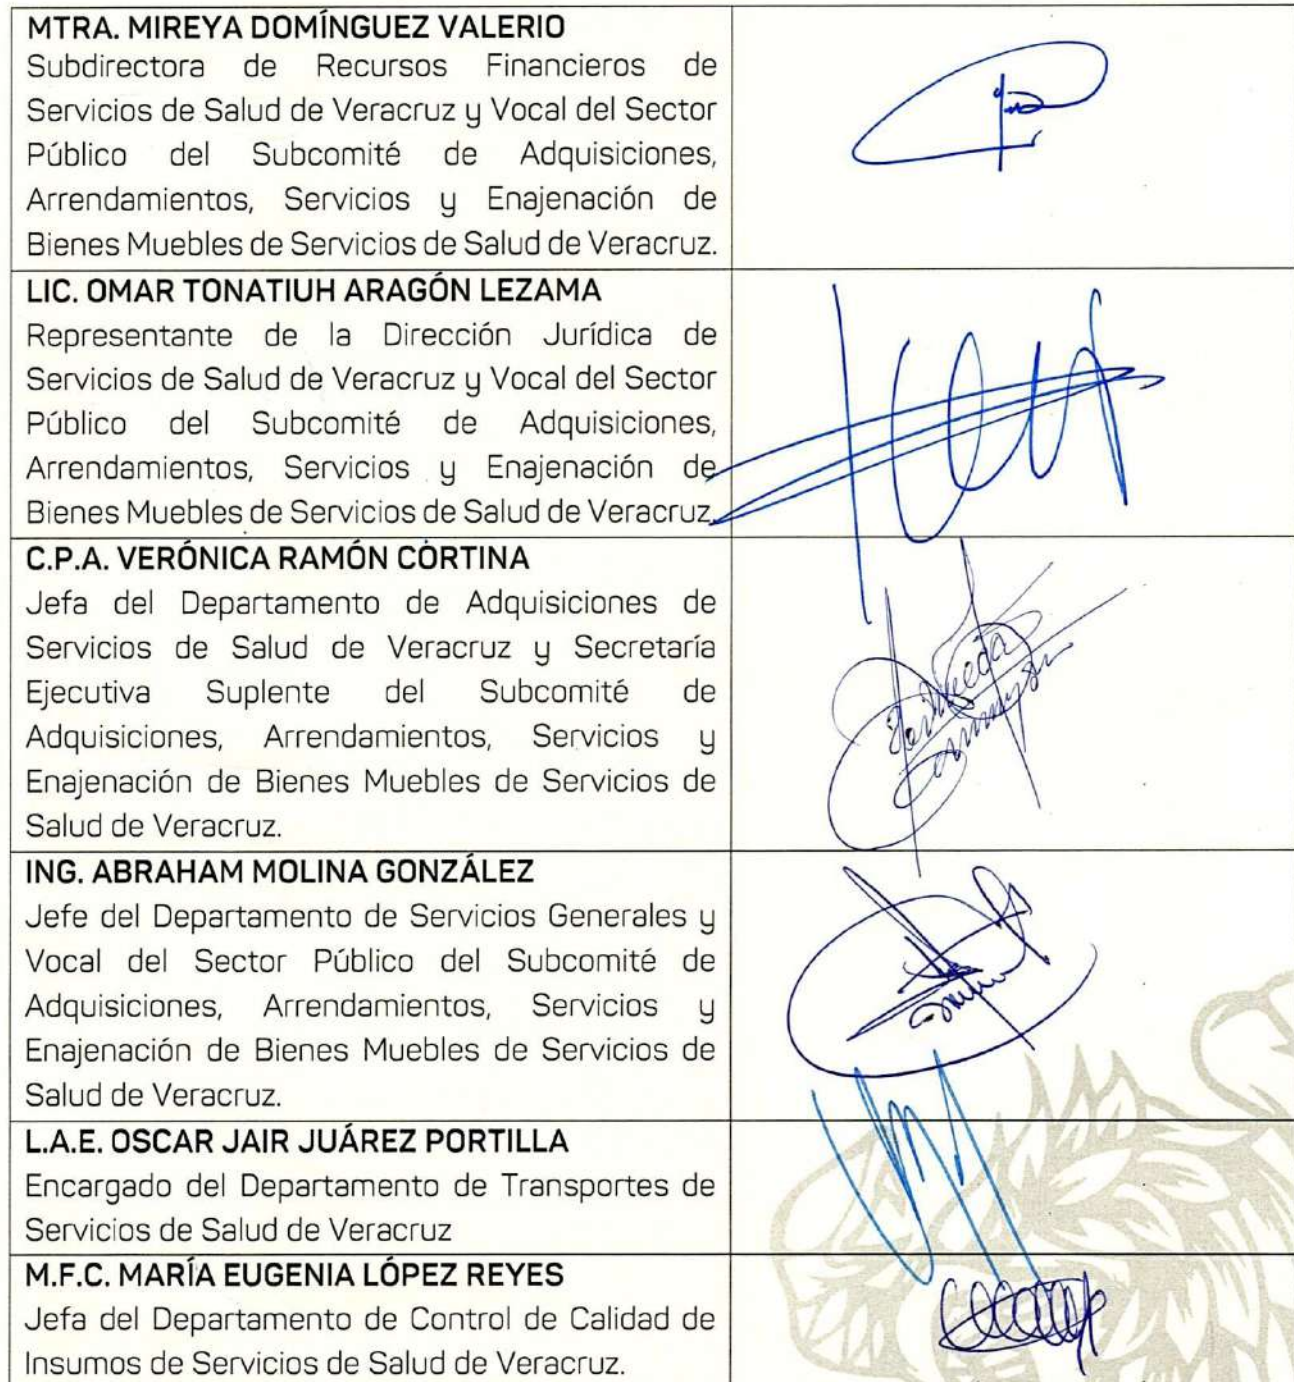 MTRA. MIREYA DOMÍNGUEZ VALERIO
Subdirectora de Recursos Financieros de
Servicios de Salud de Veracruz y Vocal del Sector
Público del Subcomité de Adquisiciones,
Arrendamientos, Servicios y Enajenación de
Bienes Muebles de Servicios de Salud de Veracruz.
LIC. OMAR TONATIUH ARAGÓN LEZAMA
Representante de la Dirección Jurídica de
Servicios de Salud de Veracruz y Vocal del Sector
Público del Subcomité de Adquisiciones,
Arrendamientos, Servicios y Enajenación de
Bienes Muebles de Servicios de Salud de Veracruz.
C.P.A. VERÓNICA RAMÓN CÒRTINA
Jefa del Departamento de Adquisiciones de
Servicios de Salud de Veracruz y Secretaría
Ejecutiva Suplente del Subcomité de
Adquisiciones, Arrendamientos, Servicios y
Enajenación de Bienes Muebles de Servicios de
Salud de Veracruz.
ING. ABRAHAM MOLINA GONZÁLEZ
Jefe del Departamento de Servicios Generales y
Vocal del Sector Público del Subcomité de
Adquisiciones, Arrendamientos, Servicios y
Enajenación de Bienes Muebles de Servicios de
Salud de Veracruz.
L.A.E. OSCAR JAIR JUÁREZ PORTILLA
Encargado del Departamento de Transportes de
Servicios de Salud de Veracruz
M.F.C. MARÍA EUGENIA LÓPEZ REYES
Jefa del Departamento de Control de Calidad de
Insumos de Servicios de Salud de Veracruz.